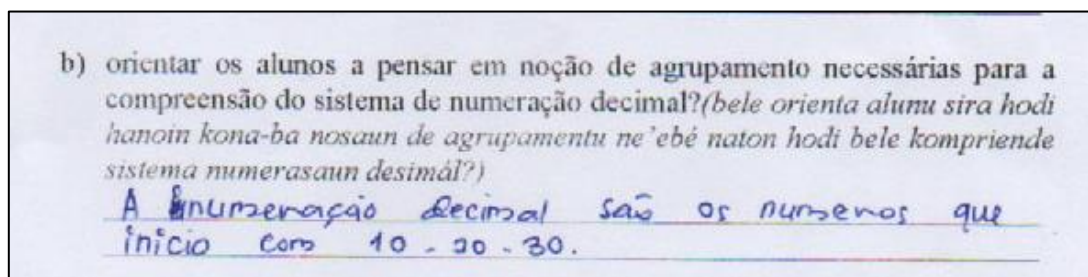 b) orientar os alunos a pensar em noção de agrupamento necessárias para a
compreensão do sistema de numeração decimal?(bele orienta alunu sira hodi
hanoin kona-ba nosaun de agrupamentu ne'ebé naton hodi bele kompriende
sistema numerasaun desimál?)
A numeração decimal são os numeros que
inicio com 10 - 20 - 30.